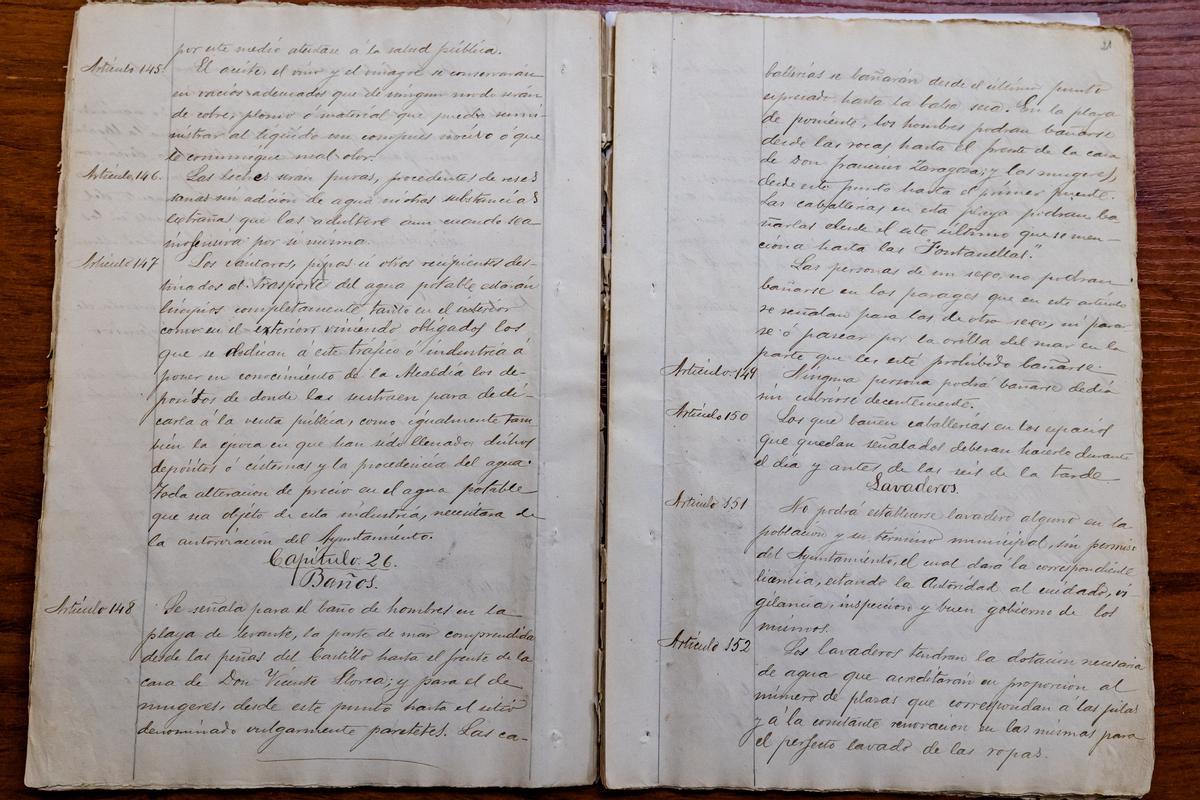 por este medio atendase á la salud pública.
Artículo 145. El aceite, el vino y el vinagre se conservarán
en vacíos adecuados que de ningun modo serán
de cobre, plomo ó material que pueda sumi-
nistrar al líquido un compues nocivo ó que
le comunique mal olor.
Artículo 146. Las leches serán puras, procedentes de reses
sanas sin adición de agua ni otras substancias
estrañas que las adultere aun cuando sea
inofensiva por si misma.
Artículo 147 Los cántaros, pipas ú otros recipientes des-
tinados al trasporte del agua potable estarán
limpios completamente tanto en el interior
como en el exterior viniendo obligados los
que se dedican á este tráfico ó industria á
poner en conocimiento de la Alcaldía los de-
positos de donde las sustraen para dedi-
carla á la venta pública, como igualmente tam-
bién la epoca en que han sido llenados dichos
depósitos ó cisternas y la procedencia del agua.
Toda alteracion de precio en el agua potable
que sea objeto de esta industria, necesitara de
la autorizacion del Ayuntamiento.
Capítulo 26.
Baños.
Artículo 148 Se señala para el baño de hombres en la
playa de levante, la parte de mar comprendida
desde las peñas del Castillo hasta el frente de la
casa de Don Vicente Llorca; y para el de
mugeres, desde este punto hasta el sitio
denominado vulgarmente paretetes. Las ca-
21
ballerías se bañarán desde el último punto
espresado hasta la balsa seca. En la playa
de poniente, los hombres podran bañarse
desde las rocas hasta el frente de la casa
de Don Francisco Zaragoza; y las mugeres,
desde este punto hasta el primer puente.
Las caballerias en esta playa podran ba-
ñarlas desde el este último que se men-
ciona hasta las "Fontanellas".
Las personas de un sexo, no podran
bañarse en los parages que en este articulo
se señalan para las de otro sexo, ni parar
se ó pasear por la orilla del mar en la
parte que les esté prohibido bañarse.
Artículo 149 Ninguna persona podrá bañarse
sin cubrirse decentemente.
Artículo 150 Los que bañen caballerías en los espacios
que quedan señalados deberan hacerlo durante
el día y antes de las seis de la tarde
Lavaderos.
Artículo 151 No podrá establecerse lavadero alguno en la
población y su término municipal, sin permiso
del Ayuntamiento, el cual dará la correspondiente
licencia, estando la Autoridad al cuidado, vi-
gilancia, inspeccion y buen gobierno de los
mismos.
Artículo 152 Los lavaderos tendran la dotación necesaria
de agua que acreditarán en proporción al
número de plazas que correspondan a las pilas
y á la constante renovacion en las mismas para
el perfecto lavado de las ropas.